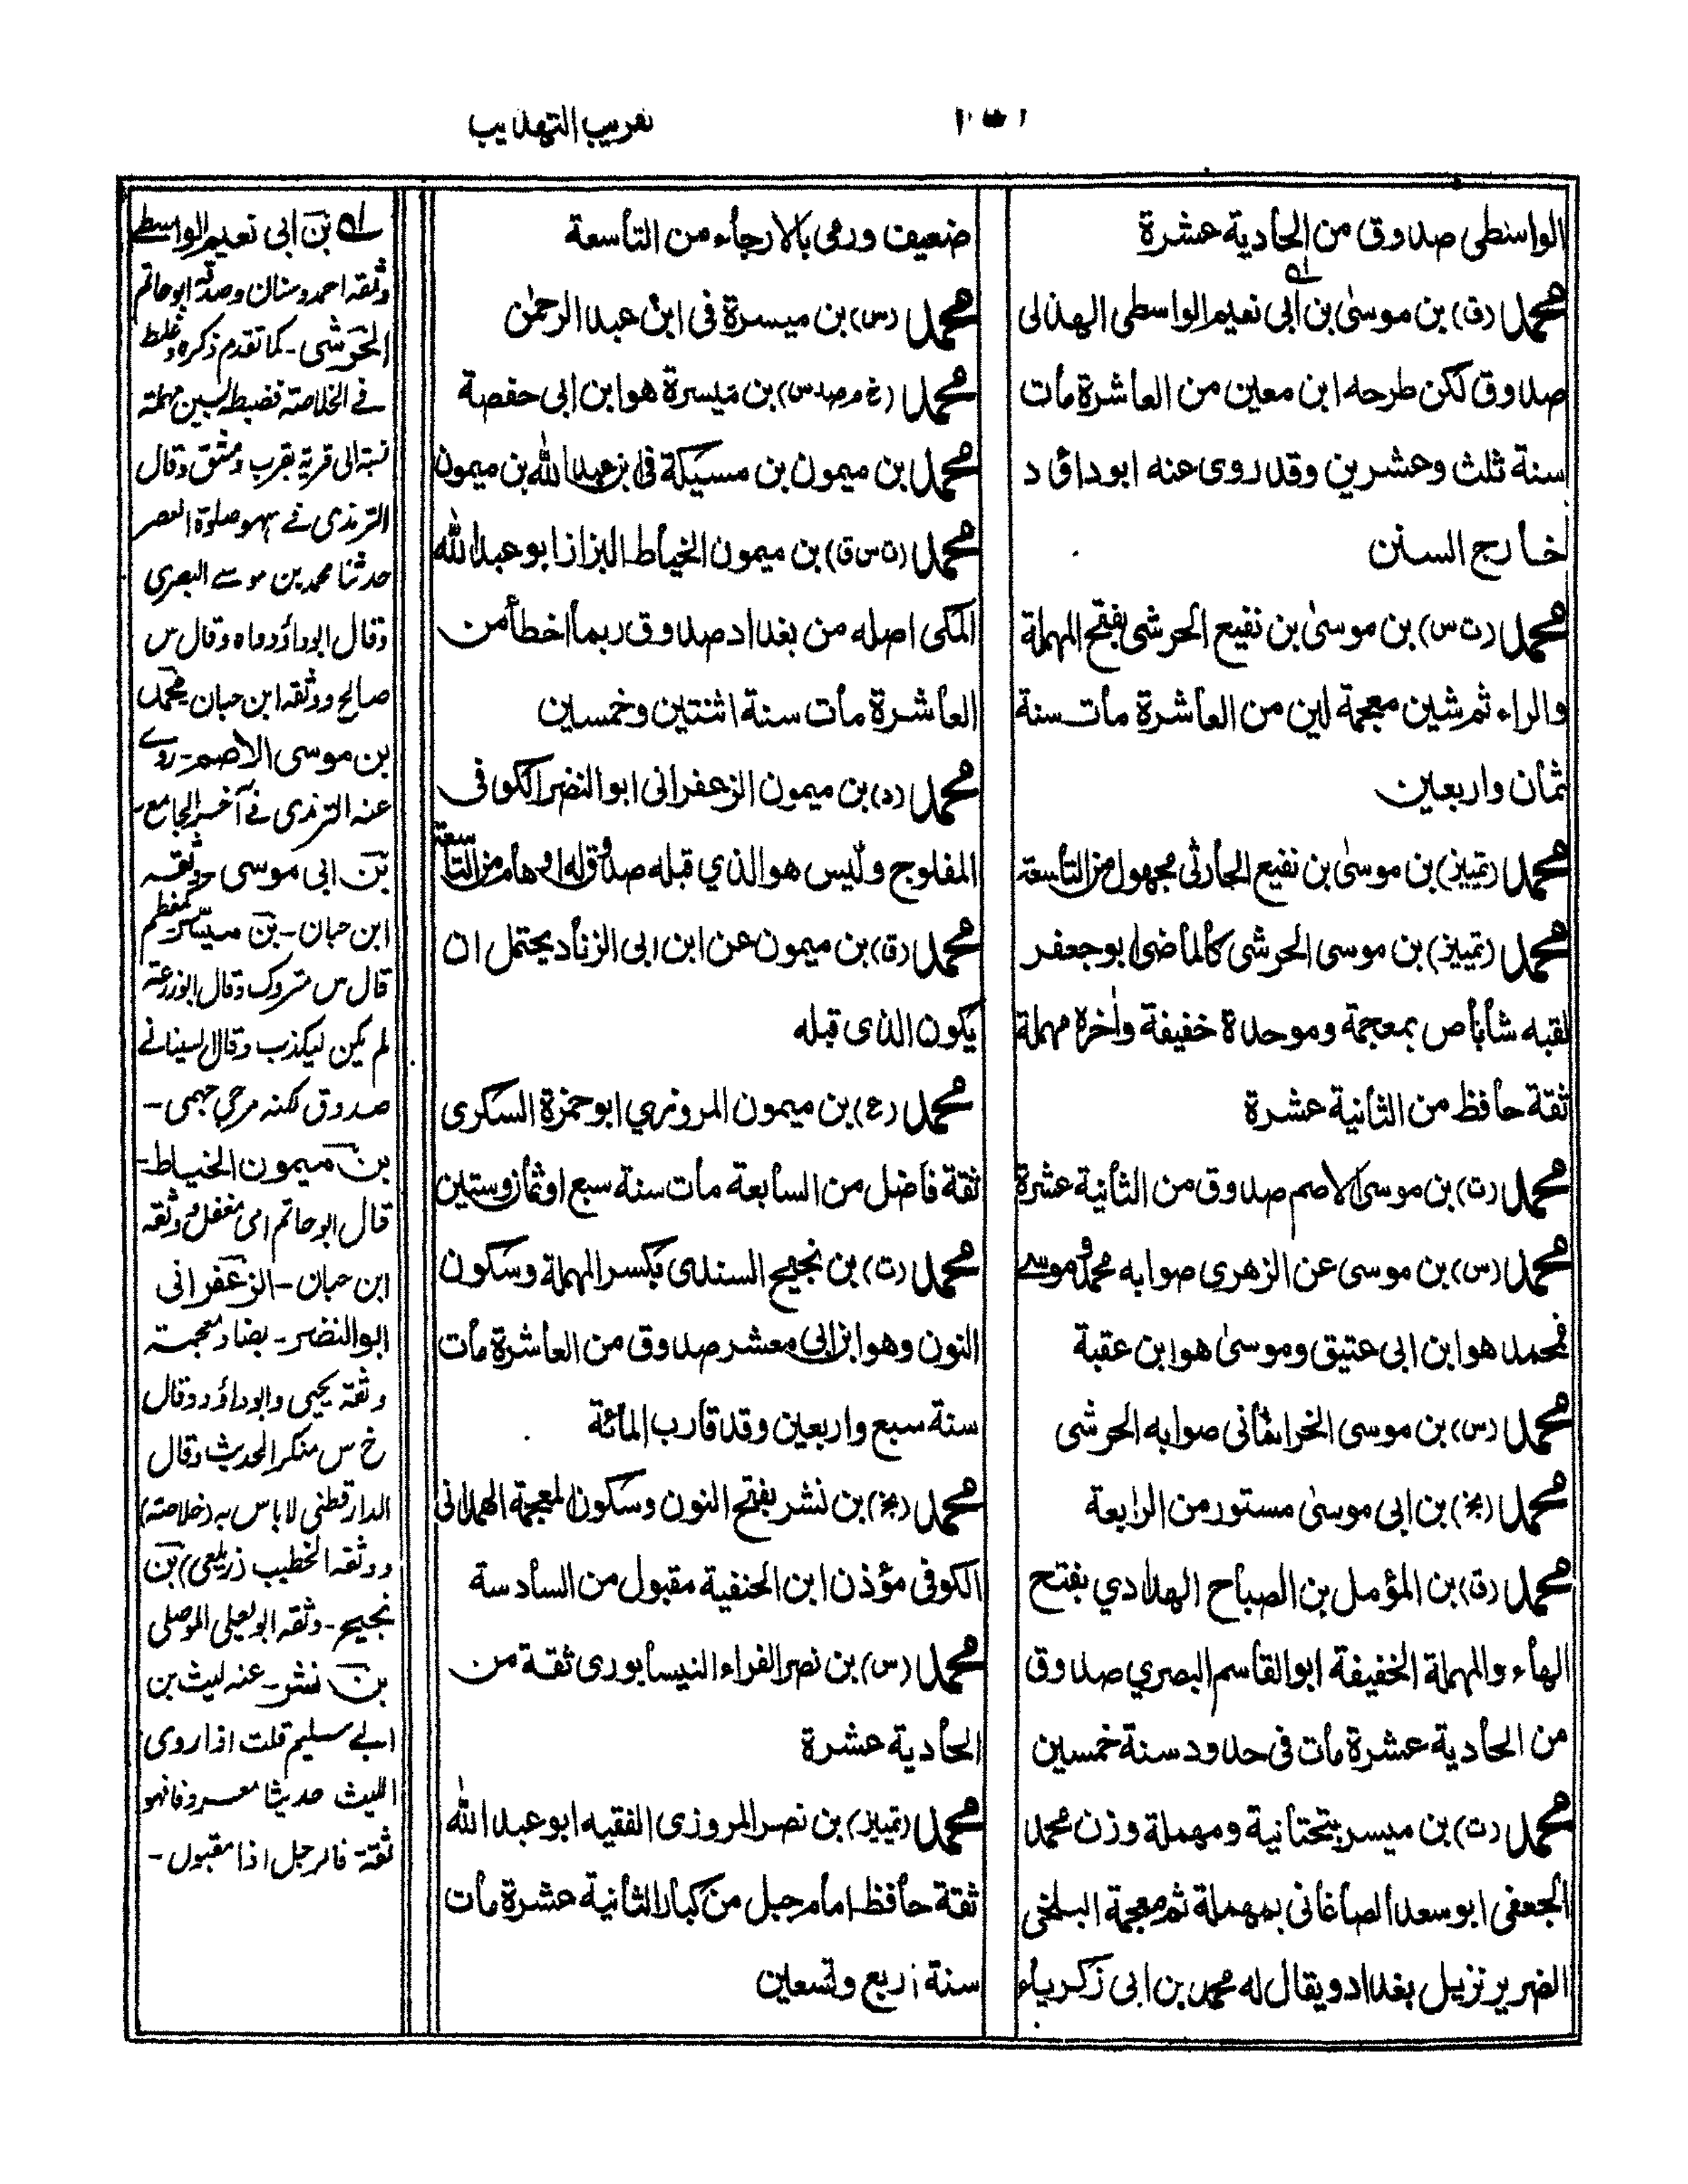 تقريب التهذيب
الواسطى صدوق من الحادية عشرة
محمد (ق) بن موسىٰ بن ابى نعيم الواسطى الهذلى
صدوق لكن طرحه ابن معين من العاشرة مات
سنة ثلث وعشرين وقد روى عنه ابوداؤد
خارج السنن
محمد (ت س) بن موسىٰ بن نفيع الحرشى بفتح المهملة
والراء ثم شين معجمة لين من العاشرة مات سنة
ثمان واربعين
محمد (تمييز) بن موسىٰ بن نفيع الحارثى مجهول من التاسعة
محمد (تمييز) بن موسى الحرشى كالماضى ابو جعفر
لقبه شاباص بمعجمة وموحدة خفيفة واٰخره مهملة
ثقة حافظ من الثانية عشرة
محمد (ت) بن موسى الاصم صدوق من الثانية عشرة
محمد (س) بن موسى عن الزهري صوابه محمد وموسے
فمحمد هوابن ابى عتيق وموسىٰ هوابن عقبة
محمد (س) بن موسى الخراشانى صوابه الحرشى
محمد (بخ) بن ابى موسىٰ مستور من الرابعة
محمد (ق) بن المؤمل بن الصباح الهدادي بفتح
الهاء والمهملة الخفيفة ابوالقاسم البصري صدوق
من الحادية عشرة مات فى حدود سنة خمسين
محمد (ت) بن ميسر بتحتانية ومهملة وزن محمد
الجعفى ابوسعد الصاغانى بمهملة ثم معجمة البلخى
الضرير نزيل بغداد ويقال له محمد بن ابى زكرياء
ضعيف ورمى بالارجاء من التاسعة
محمد (س) بن ميسرة فى ابن عبد الرحمٰن
محمد (خ م صد س) بن ميسرة هوابن ابى حفصة
محمد بن ميمون بن مسيكة فى ابن عبد الله بن ميمون
محمد (ت س ق) بن ميمون الخياط البزاز ابو عبد الله
المكى اصله من بغداد صدوق ربما اخطأ من
العاشرة مات سنة اثنتين وخمسين
محمد (د) بن ميمون الزعفرانى ابو النضر الكوفى
المفلوج وليس هوالذي قبله صدوق له اوهام من التاسعة
محمد (ق) بن ميمون عن ابن ابى الزناد يحتمل ان
يكون الذى قبله
محمد (ع) بن ميمون المروزي ابوحمزة السكرى
ثقة فاضل من السابعة مات سنة سبع اوثمان وستين
محمد (ت) بن نجيح السندى بكسر المهملة وسكون
النون وهوابن ابى معشر صدوق من العاشرة مات
سنة سبع واربعين وقد قارب المائة
محمد (بخ) بن نشر بفتح النون وسكون المعجمة الهمدانى
الكوفى مؤذن ابن الحنفية مقبول من السادسة
محمد (س) بن نصر الفراء النيسابورى ثقة من
الحادية عشرة
محمد (تمييز) بن نصر المروزى الفقيه ابو عبد الله
ثقة حافظ امام جبل من كبار الثانية عشرة مات
سنة اربع وتسعين
بن ابى نعيم الواسطے
وثقه احمد وسنان وصدقه ابوحاتم
الحرشى ـ كما تقدم ذكره وغلط
فے الخلاصة فضبطه بسين مهملة
نسبة الى قرية بقرب دمشق وقال
الترمذى فے سهو صلوة العصر
حدثنا محمد بن موسے البصرى
وقال ابوداؤد رواه وقال س
صالح ووثقه ابن حبان محمد
بن موسى الاصم ـ روے
عنه الترمذى فے آخر الجامع ـ
بن ابى موسى ـ وثقه
ابن حبان ـ بن ميسر كمعظم
قال س متروك وقال ابوزرعة
لم يكن ليكذب وقال
صدوق لكنه مرجى جهمى ـ
بن ميمون الخياط ـ
قال ابوحاتم امى مغفل ووثقه
ابن حبان ـ الزعفرانى
ابوالنضر ـ بضاد معجمة
وثقه يحيى وابوداؤد وقال
خ س منكر الحديث وقال
الدارقطنى لا باس به (خلاصة)
ووثقه الخطيب (زيلعى) بن
نجيح ـ وثقه ابويعلى الموصلى
بن نشر ـ عنه ليث بن
ابے سليم قلت اذا روى
الليث حديثا معروفا فهو
ثقة فالرجل اذا مقبول ـ